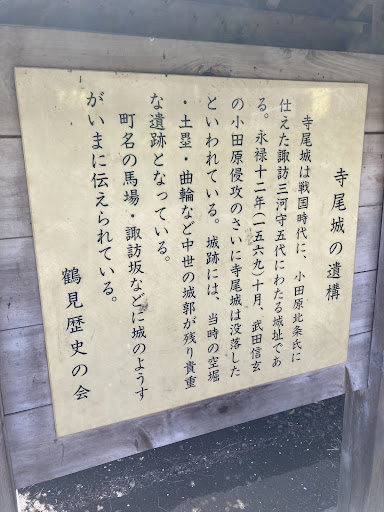 寺尾城の遺構
寺尾城は戦国時代に、小田原北条氏に
仕えた諏訪三河守五代にわたる城址であ
る。永禄十二年(一五六九)十月、武田信玄
の小田原侵攻のさいに寺尾城は没落した
といわれている。城跡には、当時の空堀
・土塁・曲輪など中世の城郭が残り貴重
な遺跡となっている。
町名の馬場・諏訪坂などに城のようす
がいまに伝えられている。
鶴見歴史の会